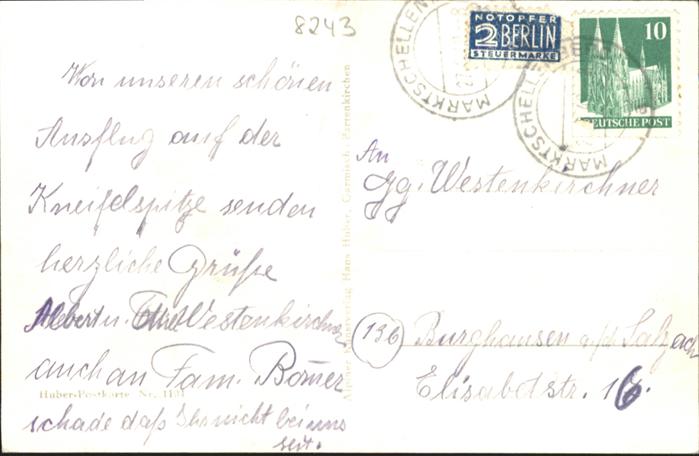 8243
Von unseren schönen
Ausflug auf der
Kneifelspitze senden
herzliche Grüße
Albert u. Westenkirchner
auch an Fam. Bomer
Huber-Postkarte Nr. 1194
schade daß Ihr nicht bei uns
seit.
Alpiner Kunstverlag Hans Huber, Garmisch-Partenkirchen
NOTOPFER
2 BERLIN
STEUERMARKE
10
DEUTSCHE POST
MARKTSCHELLEN
MARKTSCHELLENBERG
An
Gg. Westenkirchner
13b Burghausen a/d Salzach
Elisabetstr. 16.